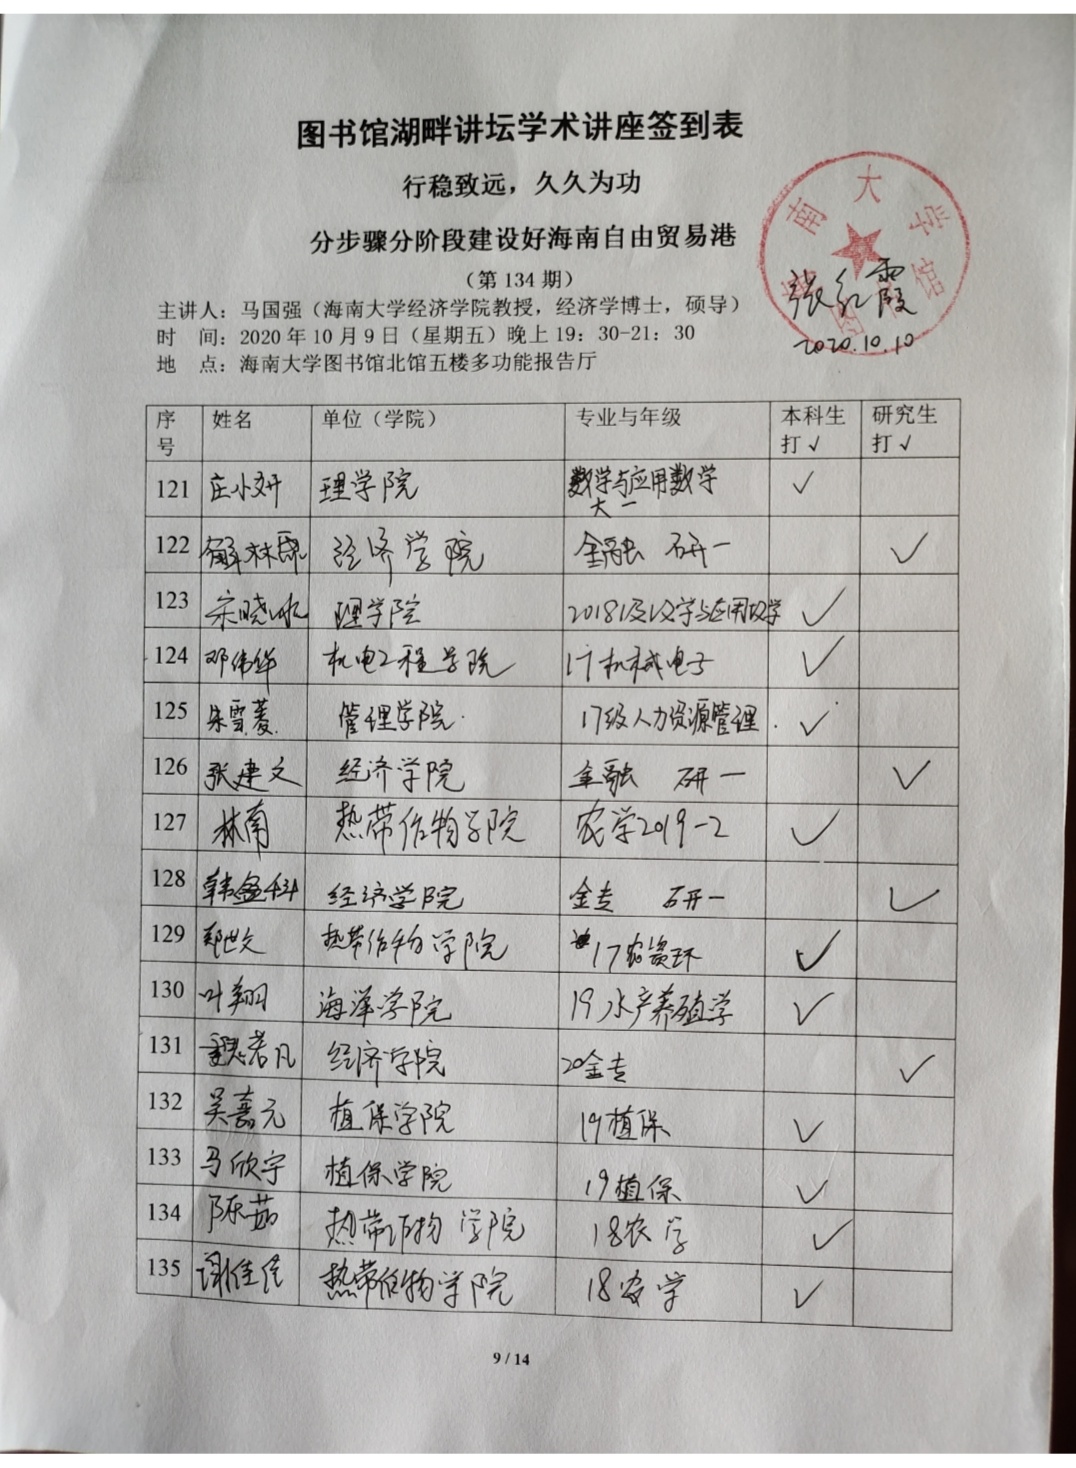 图书馆湖畔讲坛学术讲座签到表
行稳致远，久久为功
分步骤分阶段建设好海南自由贸易港
（第 134 期）
主讲人：马国强（海南大学经济学院教授，经济学博士，硕导）
时　间：2020 年 10 月 9 日（星期五）晚上 19：30-21：30
地　点：海南大学图书馆北馆五楼多功能报告厅
南大学 馆
张红霞
2020.10.10
序号 姓名 单位（学院） 专业与年级 本科生打√ 研究生打√
121 庄小妍 理学院 数学与应用数学大一 √
122 解林 经济学院 金融 研一 √
123 宋晓冰 理学院 2018级数学与应用数学 √
124 邓伟华 机电工程学院 17机械电子 √
125 朱雪菱 管理学院 17级人力资源管理 √
126 张建文 经济学院 金融 研一 √
127 林南 热带作物学院 农学2019-2 √
128 韩盈科 经济学院 金专 研一 √
129 郑世文 热带作物学院 17农资环 √
130 叶翔 海洋学院 19水产养殖学 √
131 魏若凡 经济学院 20金专 √
132 吴嘉元 植保学院 19植保 √
133 马欣宇 植保学院 19植保 √
134 陈茹 热带作物学院 18农学 √
135 谢佳佳 热带作物学院 18农学 √
9 / 14